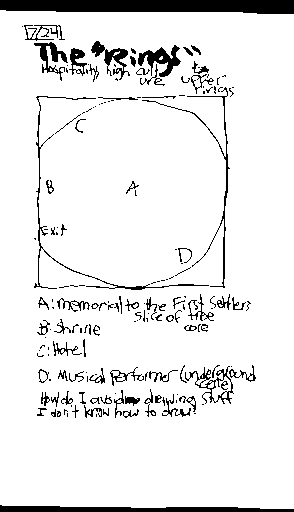 7/24
The "Rings"
Hospitality, high culture
to upper rings
C
B
A
Exit
D
A: memorial to the First Settlers
slice of tree core
B: Shrine
C: Hotel
D. Musical Performer (underground cafe)
How do I avoid drawing stuff
I don't know how to draw?